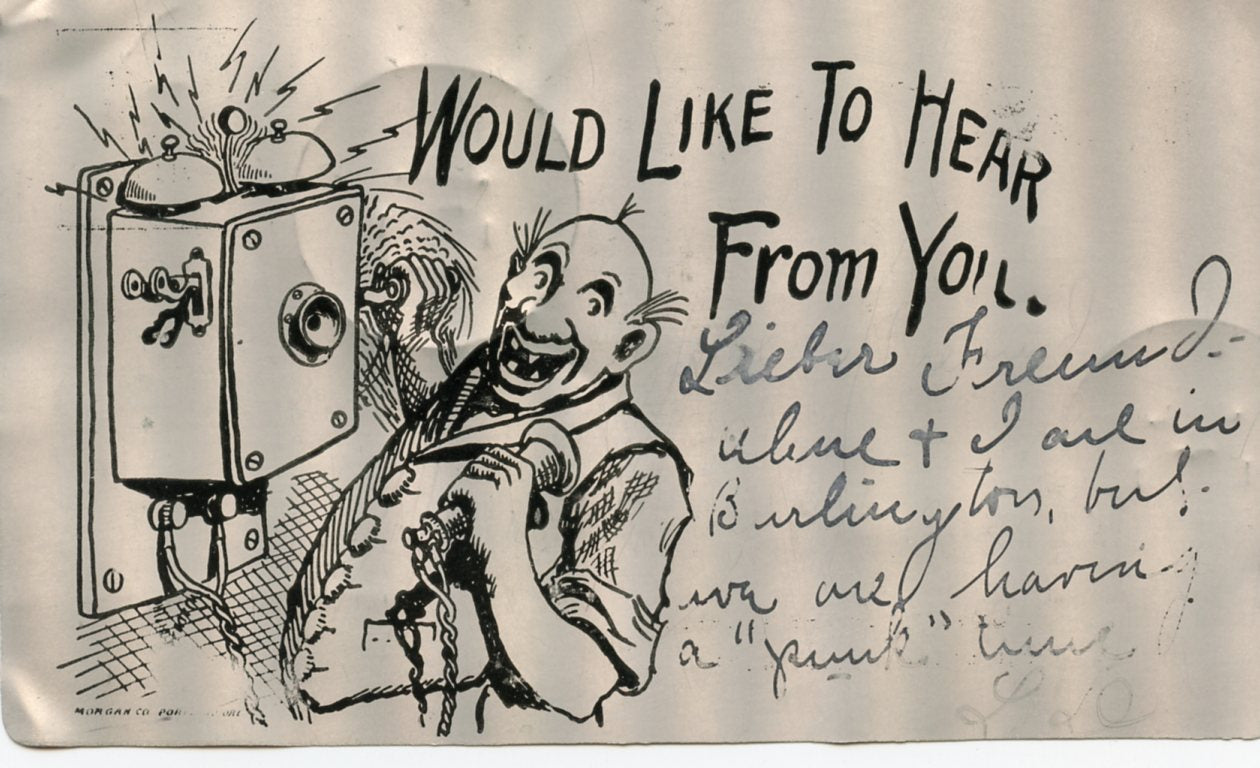 WOULD LIKE TO HEAR
FROM YOU.
Lieber Freund-
+ I are in
Burlington, but
we are having
a "punk" time
MORGAN CO. PORT ORE